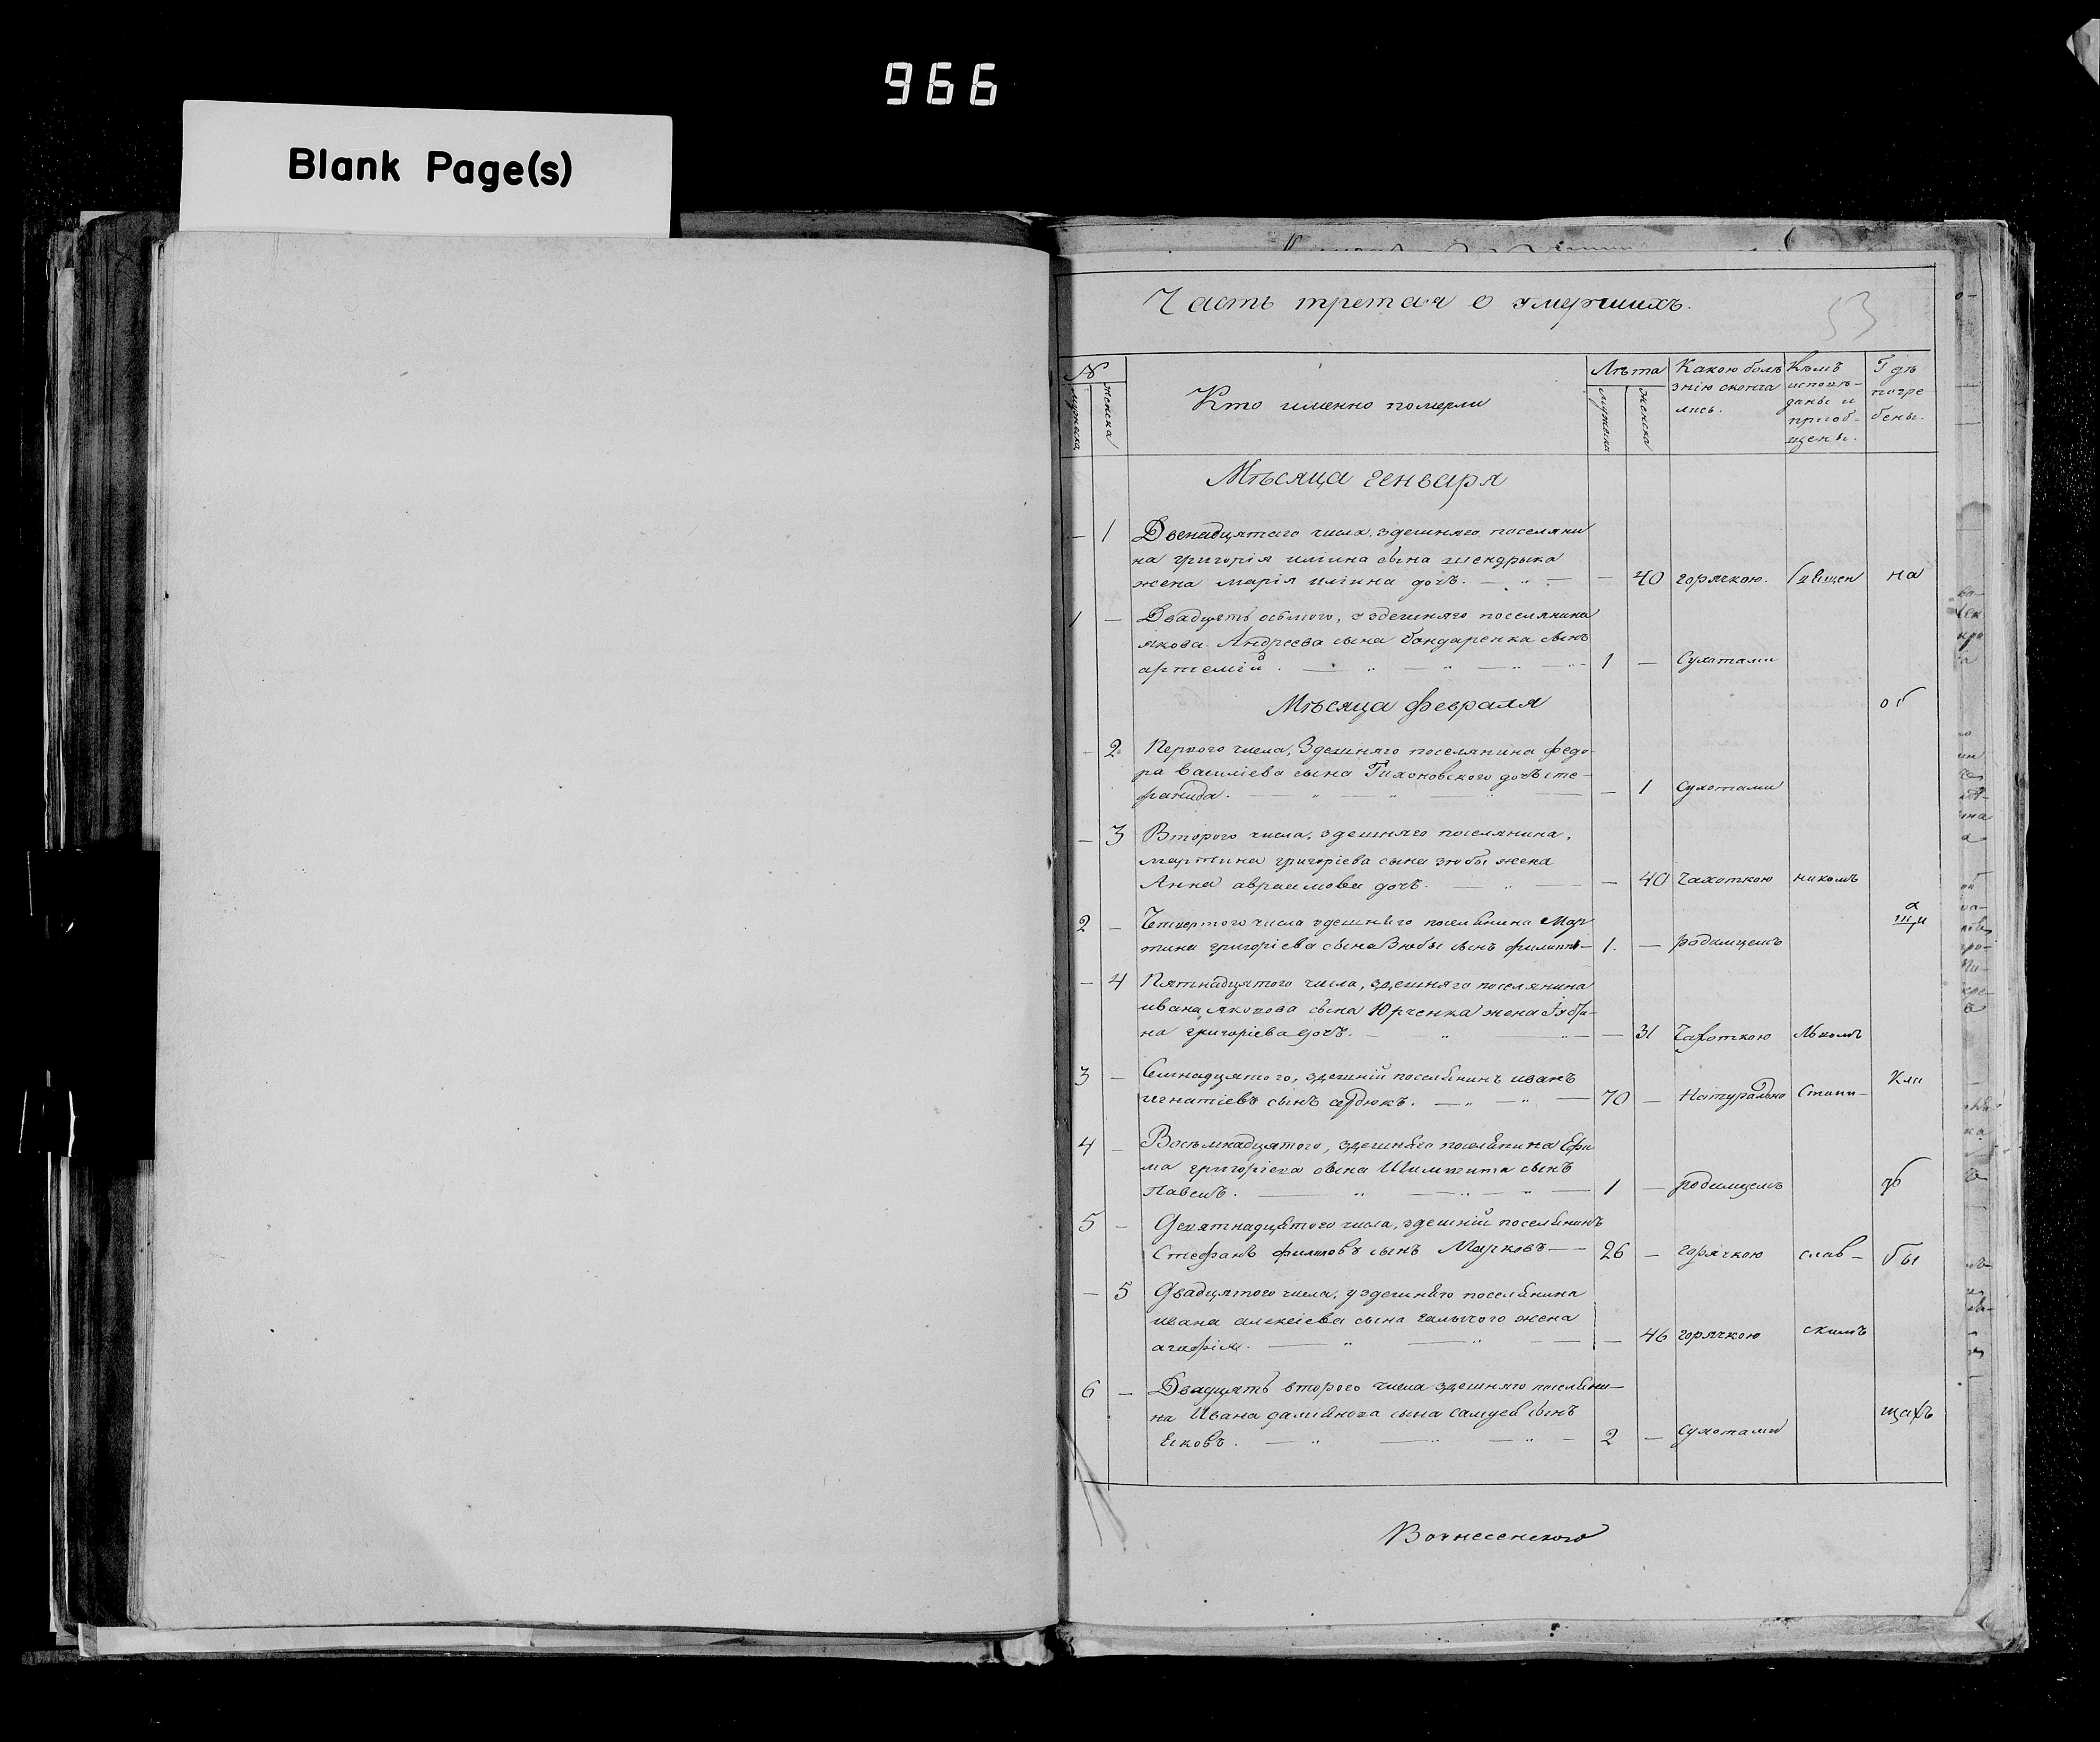 966
Blank Page(s)
Часть третая о умершихъ.
53
№
мужеска
женска
Кто именно померли
Лѣта
мужеска
женска
Какою болѣ
знію сконча
лись.
Кѣмъ
исповѣ-
даны и
приоб-
щены.
Гдѣ
погре
бены.
Мѣсяца генваря
— 1 Двенадцятаго числа, здешняго поселяни
на григорія иліина сына шендрыка
жена марія иліина дочь. — 40 горячкою. Священ на
1 — Двадцять осьмого, здешняго поселянина
якова Андреева сына бондаренка сынъ
артемій. 1 — Сухотами
Мѣсяца февраля
об
- 2 Первого числа, Здешняго поселянина федо-
ра василіева сына Тихоновского дочь сте-
фанида. — 1 Сухотами
— 3 Второго числа, здешняго поселянина,
мартина григоріева сына зюбы жена
Анна авраимова дочь. — 40 Чахоткою никомъ
2 — Четвертого числа здешняго поселянина Мар
тина григоріева сына Зюбы сынъ филиппъ — 1. — родимцемъ
— 4 Пятнадцятого числа, здешняго поселянина
ивана якопова сына Юрченка жена
на григоріева дочь. — 31 Чахоткою
3 — Семнадцятого, здешній поселянинъ иванъ
игнатіевъ сынъ сердюкъ. 70 — Натурально Стани- кла
4 — Восемнадцятого, здешняго поселянина Ефи
ма григоріева сына сынъ
павелъ. 1 — родимцемъ
5 — Девятнадцятого числа, здешній поселянинъ
Стефанъ филиповъ сынъ Марковъ — 26 — горячкою слав- бы
— 5 Двадцятого числа, у здешняго поселянина
ивана алексіева сына жена
агафія. — 46 горячкою скимъ
6 — Двадцять второго числа здешняго поселяни-
на Ивана сына сынъ
2 — Сухотами щахъ
Вознесенского